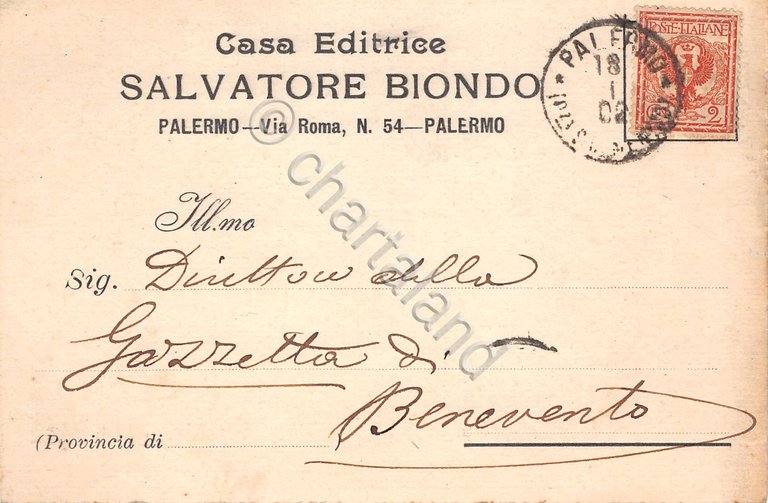 Casa Editrice
SALVATORE BIONDO
PALERMO—Via Roma, N. 54—PALERMO
POSTE ITALIANE
2
PALERMO
18
1
02
Ill.mo
Sig. Direttore della
Gazzetta di
Benevento
(Provincia di
© chartaland